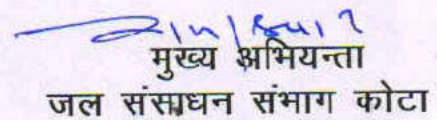 मुख्य अभियन्ता
जल संसाधन संभाग कोटा